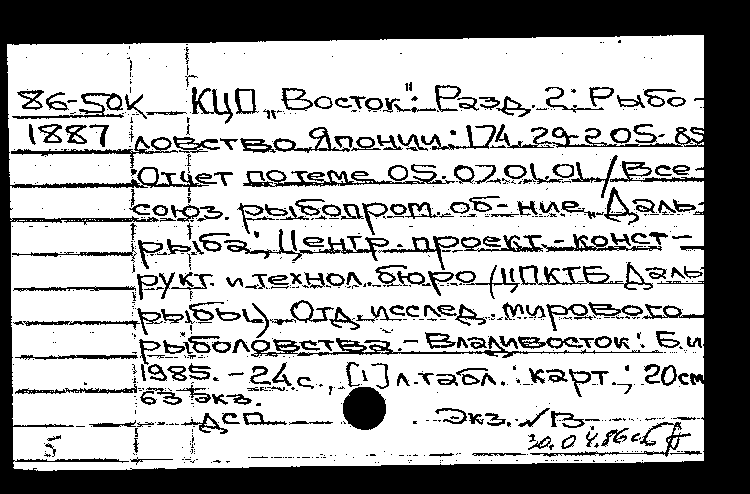 86-50к КЦП „Восток": Разд. 2: Рыбо-
1887 ловство Японии: 174.29-205-85
Отчет по теме 05.07.01.01 / Все-
союз. рыбопром. об-ние „Даль-
рыба", Центр. проект.-конст-
рукт. и технол. бюро (ЦПКТБ Даль
рыбы). Отд. исслед. мирового
рыболовства. - Владивосток: Б.и
1985. - 24 с., [1] л. табл.: карт.; 20см
63 экз.
ДСП Экз. №
5 30.04.86